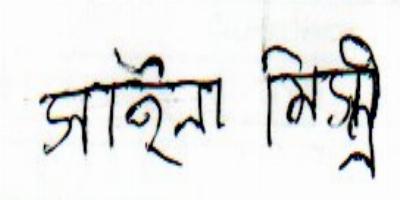 সাইনা মিস্ত্রী